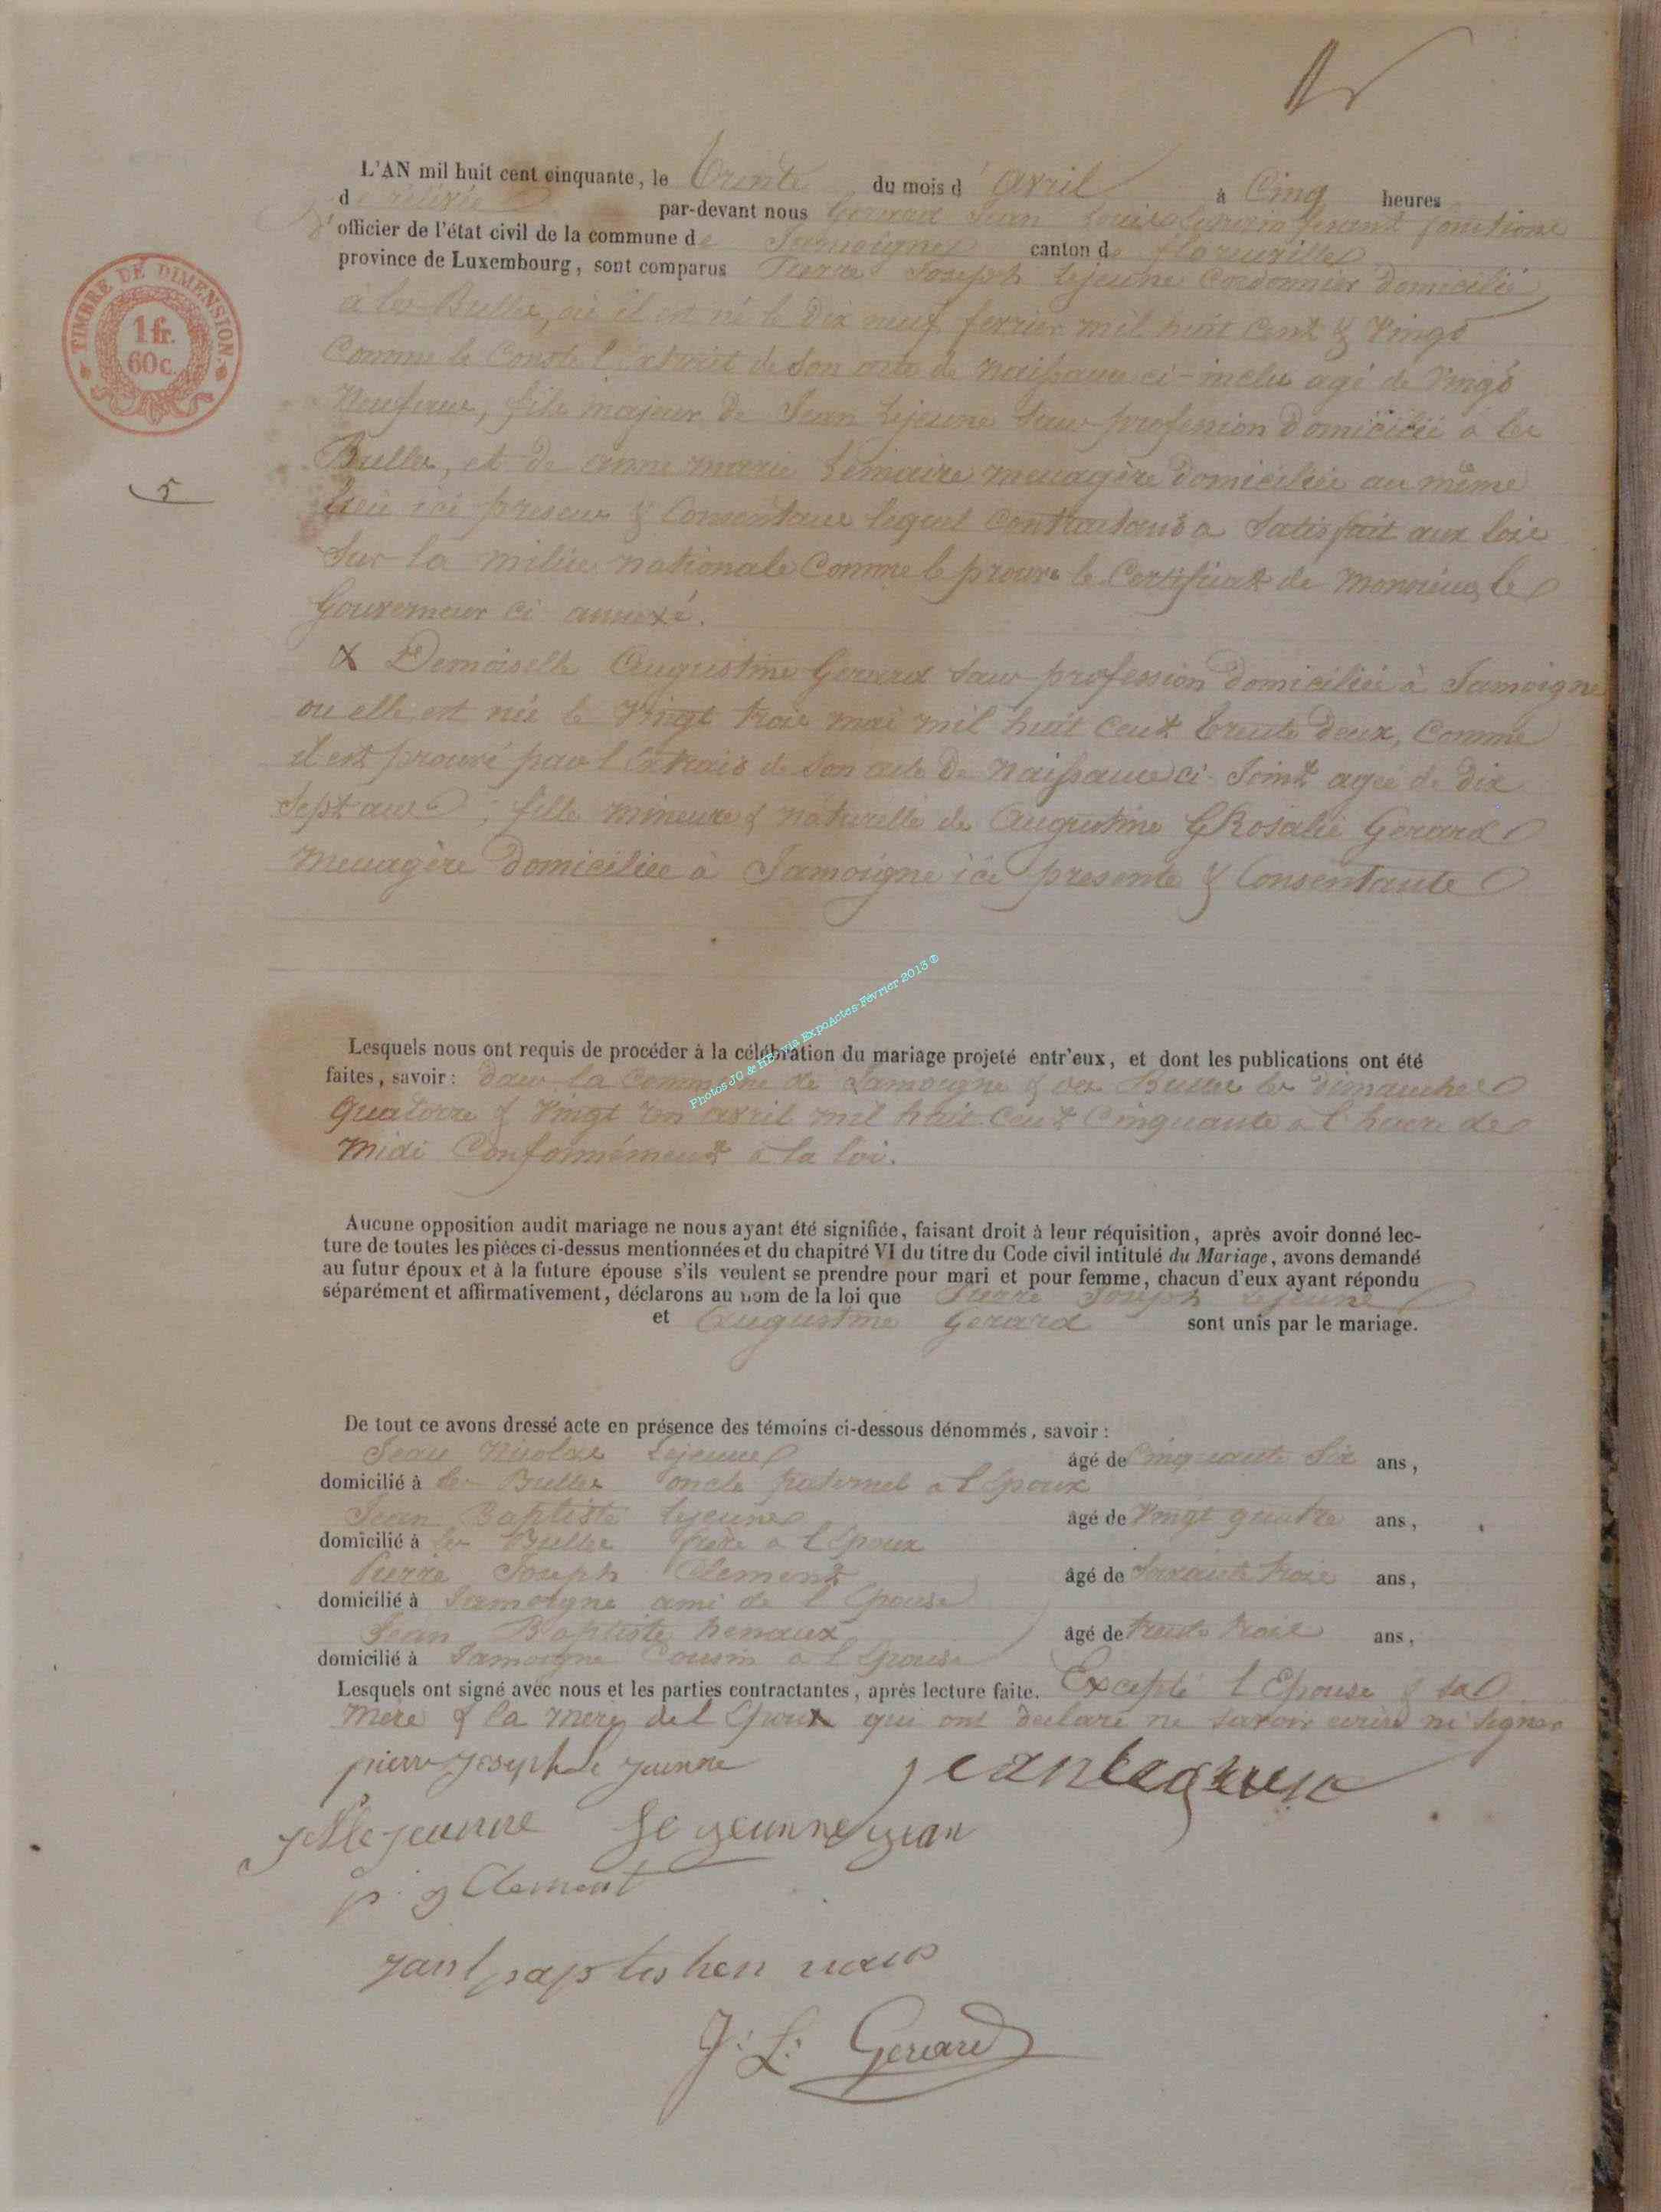 L'AN mil huit cent cinquante, le Trente du mois d'avril à Cinq heures
de relevée par-devant nous Gerard Jean Louis Echevin ferant fonctions
d'officier de l'état civil de la commune de Jamoigne canton de florenville
province de Luxembourg, sont comparus Pierre Joseph Lejeune Cordonnier domicilié
à les Bulles, où il est né le Dix neuf ferrier mil huit cent & Vingt
Comme le Conste l'extrait de son acte de naissance ci-inclus agé de Vingt
Neuf ans, fils majeur de Jean Lejeune sans profession domicilié à les
Bulles, et de anne marie Lemaire menagère domiciliée au même
lieu ici presens & Consentans lequel Contractant a Satisfait aux lois
Sur la milice nationale Comme le prouve le Certificat de Monsieur le
Gouverneur ci annexé.
& Demoiselle Augustine Gerard sans profession domiciliée à Jamoigne
ou elle est née le Vingt trois mai mil huit cent trente deux, Comme
il est prouvé par l'Extrait de son acte de naissance ci-Joint agée de dix
Sept ans ; fille mineure & naturelle de Augustine Rosalie Gerard
menagère domiciliée à Jamoigne ici presente & Consentante
Photos JC & HB via ExpoActes-Février 2013 ©
Lesquels nous ont requis de procéder à la célébration du mariage projeté entr'eux, et dont les publications ont été
faites, savoir : dans la Commune de Jamoigne & des Bulles les dimanches
Quatorze & Vingt un avril mil huit Cent Cinquante a l'heure de
midi Conformément a la loi.
Aucune opposition audit mariage ne nous ayant été signifiée, faisant droit à leur réquisition, après avoir donné lec-
ture de toutes les pièces ci-dessus mentionnées et du chapitré VI du titre du Code civil intitulé du Mariage, avons demandé
au futur époux et à la future épouse s'ils veulent se prendre pour mari et pour femme, chacun d'eux ayant répondu
séparément et affirmativement, déclarons au nom de la loi que Pierre Joseph Lejeune
et Augustine Gerard sont unis par le mariage.
De tout ce avons dressé acte en présence des témoins ci-dessous dénommés, savoir :
Jean Nicolas Lejeune âgé de Cinquante Six ans,
domicilié à les Bulles oncle paternel a l'Epoux
Jean Baptiste Lejeune âgé de Vingt quatre ans,
domicilié à les Bulles frère a l'Epoux
Pierre Joseph Clement âgé de Soixante trois ans,
domicilié à Jamoigne ami de l'Epouse
Jean Baptiste henaux âgé de trente trois ans,
domicilié à Jamoigne Cousin a l'Epouse
Lesquels ont signé avec nous et les parties contractantes, après lecture faite. Excepté l'Epouse & sa
mère & la mere de l'Epoux qui ont declaré ne savoir ecrire ni signer
pierre Joseph le jeunne
lejeunne le jeunne jean
p. j Clement
J. L. Gerard
TIMBRE DE DIMENSION
1 fr.
60 c.
5